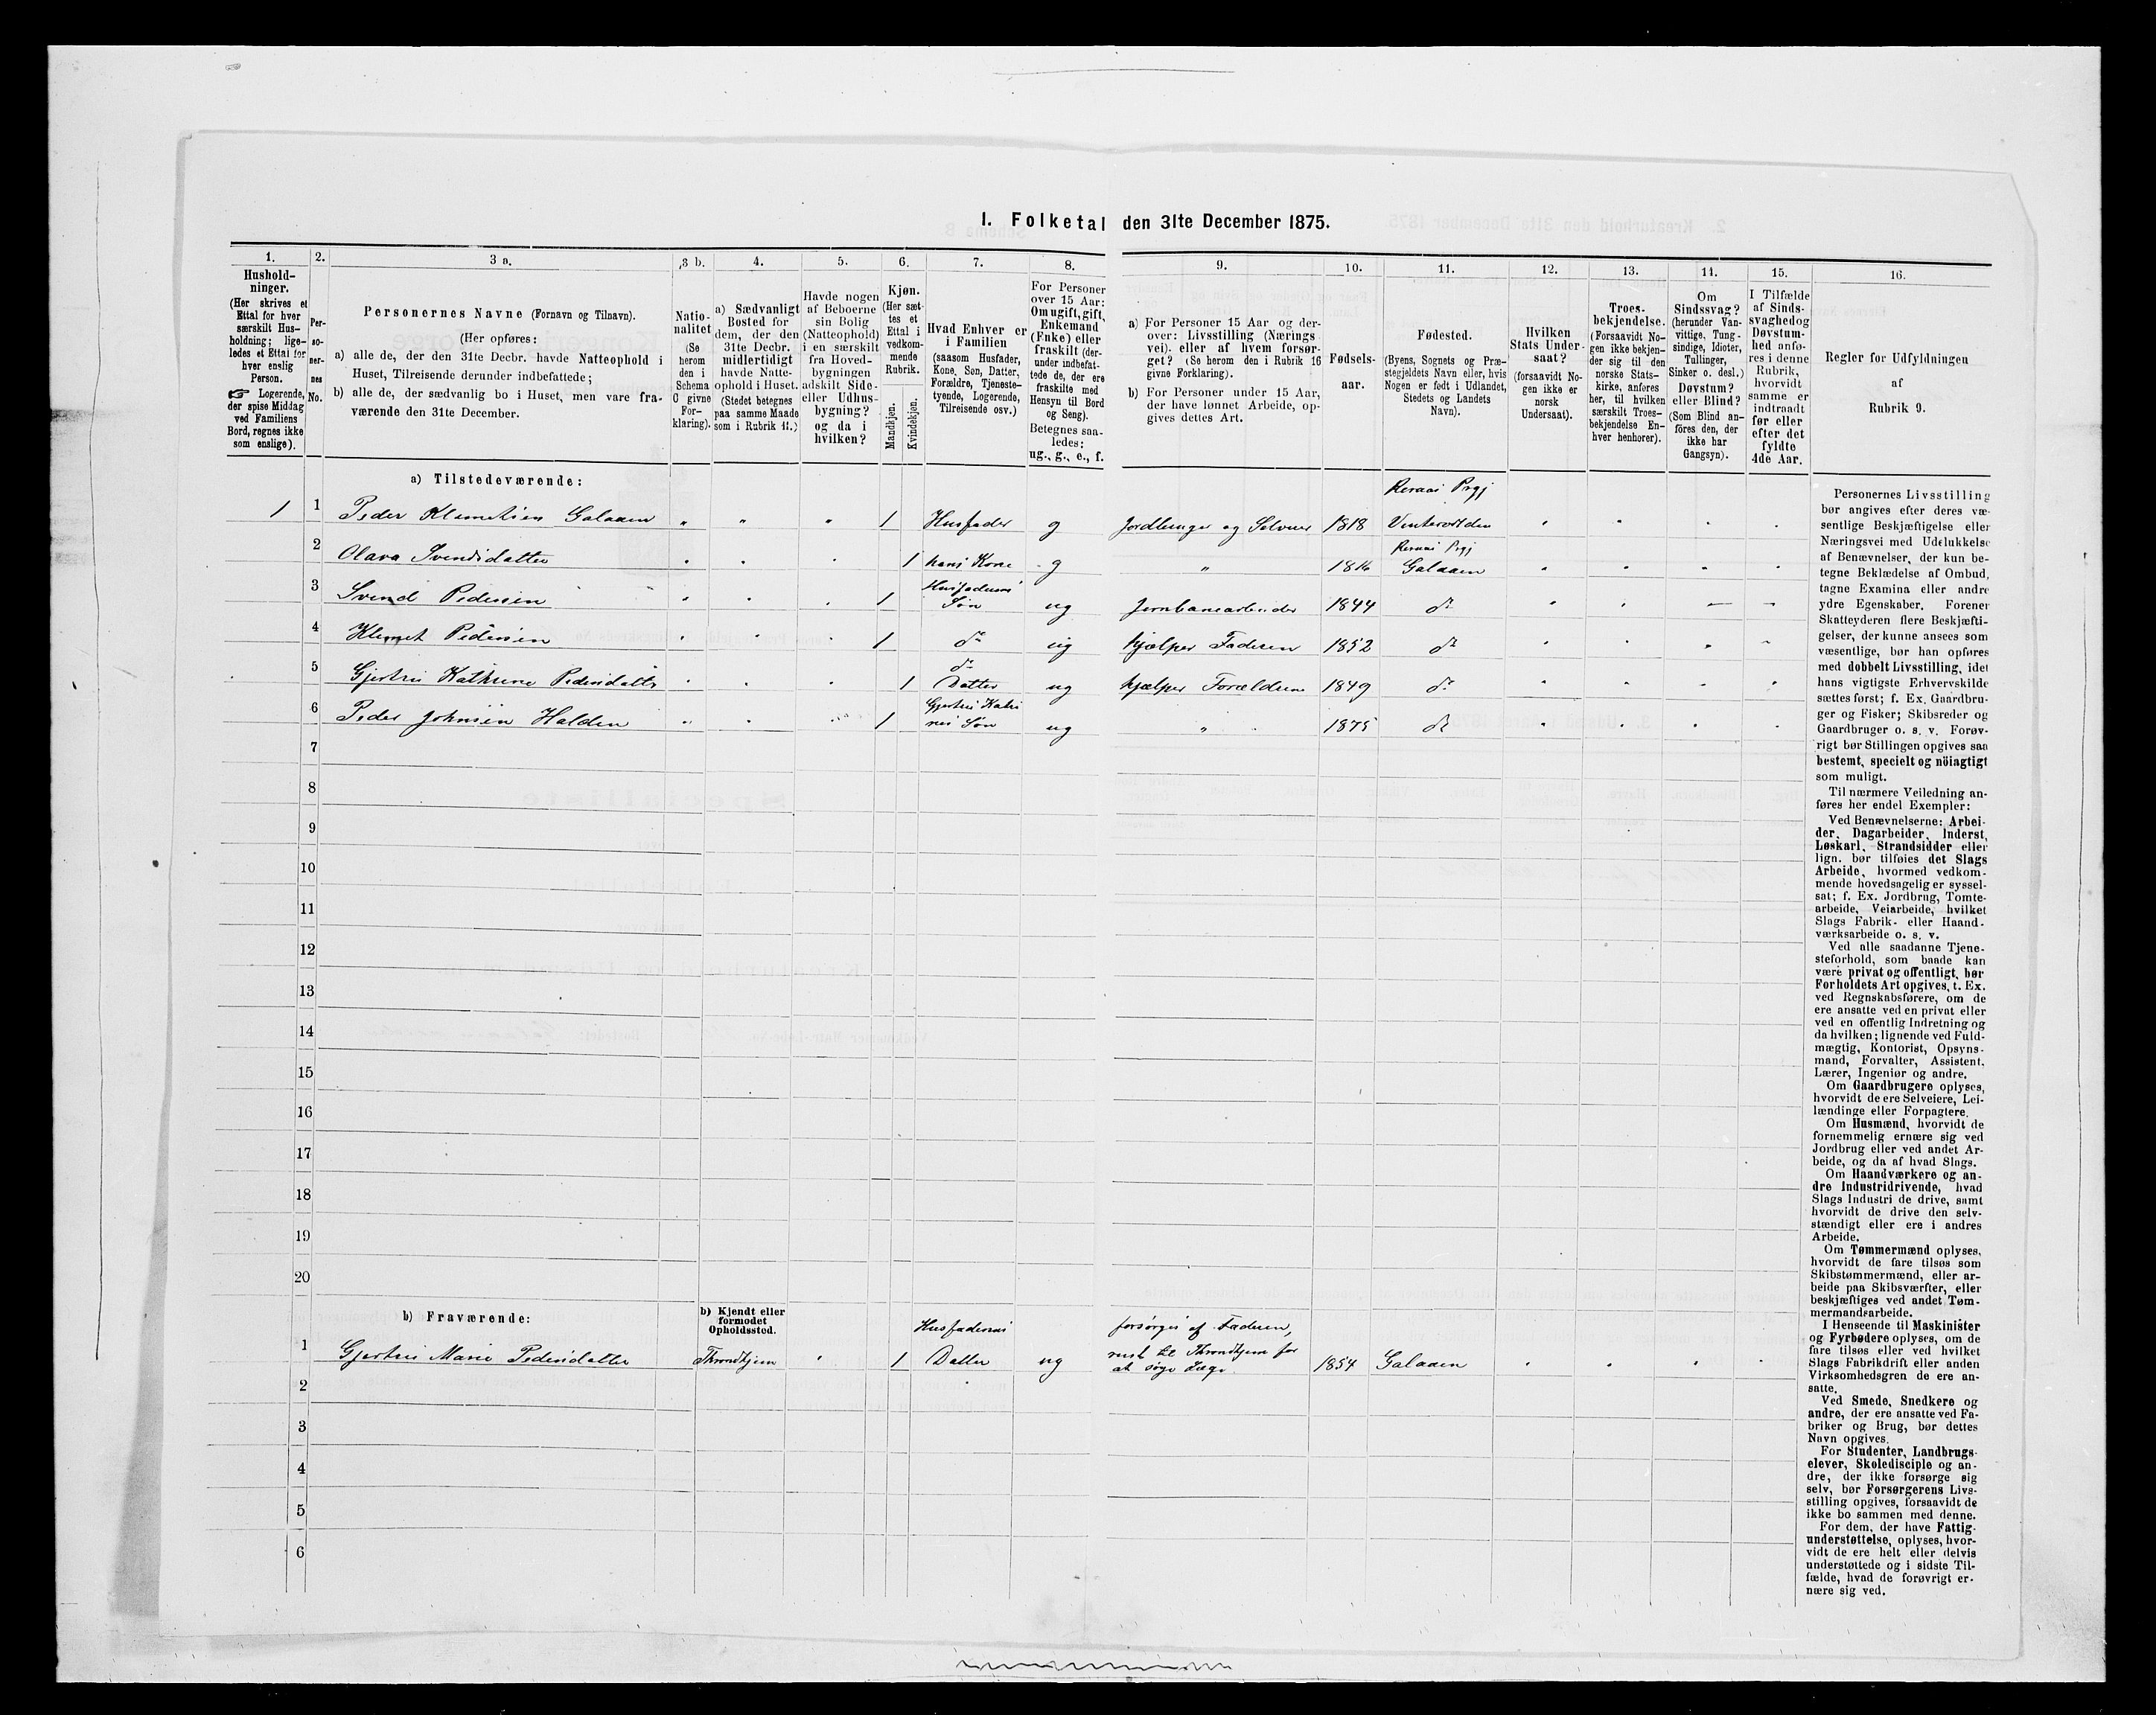 I. Folketal den 31te December 1875.
1.
Hushold-
ninger.
(Her skrives et
Ettal for hver
særskilt Hus-
holdning; lige-
ledes et Ettal for
hver enslig
Person.
☞ Logerende,
der spise Middag
ved Familiens
Bord, regnes ikke
som enslige).
2.
Per-
so-
ner-
nes
No.
3 a.
Personernes Navne (Fornavn og Tilnavn).
(Her opføres:
a) alle de, der den 31te Decbr. havde Natteophold i
Huset, Tilreisende derunder indbefattede;
b) alle de, der sædvanlig bo i Huset, men vare fra-
værende den 31te December.
3 b.
Natio-
nalitet
(Se
herom
den i
Schema
C givne
For-
klaring).
4.
a) Sædvanligt
Bosted for
dem, der den
31te Decbr.
midlertidigt
havde Natte-
ophold i Huset.
(Stedet betegnes
paa samme Maade
som i Rubrik 11.)
5.
Havde nogen
af Beboerne
sin Bolig
(Natteophold)
i en særskilt
fra Hoved-
bygningen
adskilt Side-
eller Udhus-
bygning?
og da i
hvilken?
6.
Kjøn.
(Her sæt-
tes et
Ettal i
vedkom-
mende
Rubrik.
Mandkjøn.
Kvindekjøn.
7.
Hvad Enhver er
i Familien
(saasom Husfader,
Kone, Søn, Datter,
Forældre, Tjeneste-
tyende, Logerende,
Tilreisende osv.)
8.
For Personer
over 15 Aar:
Om ugift, gift,
Enkemand
(Enke) eller
fraskilt (der-
under indbefat-
tede de, der ere
fraskilte med
Hensyn til Bord
og Seng).
Betegnes saa-
ledes:
ug., g., e., f.
9.
a) For Personer 15 Aar og der-
over: Livsstilling (Nærings
vei). eller af hvem forsør-
get? (Se herom den i Rubrik 16
givne Forklaring).
b) For Personer under 15 Aar,
der have lønnet Arbeide, op-
gives dettes Art.
10.
Fødsels-
aar.
11.
Fødested.
(Byens, Sognets og Præ-
stegjeldets Navn eller, hvis
Nogen er født i Udlandet,
Stedets og Landets
Navn).
12.
Hvilken
Stats Under-
saat?
(forsaavidt No-
gen ikke er
norsk
Undersaat).
13.
Troes-
bekjendelse.
(Forsaavidt No-
gen ikke bekjen-
der sig til den
norske Stats-
kirke, anføres
her, til hvilken
særskilt Troes-
bekjendelse En-
hver henhører).
14.
Om
Sindssvag?
(herunder Van-
vittige, Tung-
sindige, Idioter,
Tullinger,
Sinker o. desl.)
Døvstum?
eller Blind?
(Som Blind an-
føres den, der
ikke har
Gangsyn).
15.
I Tilfælde
af Sinds-
svaghed og
Døvstum-
hed anfø-
res i denne
Rubrik,
hvorvidt
samme er
indtraadt
før eller
efter det
fyldte
4de Aar.
16.
Regler for Udfyldningen
af
Rubrik 9.
a) Tilstedeværende:
1 1 Peder Klemetsen Galaaen " " " 1 Husfader g Jordbruger og Selveier 1818 Røraas Prgj
2 Olava Svendsdatter 1 hans Kone g " 1816 Røraas Prgj Galaaen
3 Svend Pedersen 1 Husfaderens Søn ug Jernbanearbeider 1844 do
4 Klemet Pedersen 1 do ug hjælper Faderen 1852 do
5 Gjertru Kathrine Pedersdatter 1 do Datter ug hjælper Forældrene 1849 do
6 Peder Johnsen Halden 1 Gjertru Kathrines Søn ug " 1875 do
7
8
9
10
11
12
13
14
15
16
17
18
19
20
b) Fraværende:
b) Kjendt eller
formodet
Opholdssted.
1 Gjertru Marie Pedersdatter Throndhjem 1 Husfaderens Datter ug forsørges af Faderen,
reist til Throndhjem for
at søge Læge. 1854 Galaaen
2
3
4
5
6
Personernes Livsstilling
bør angives efter deres væ-
sentlige Beskjæftigelse eller
Næringsvei med Udelukkelse
af Benævnelser, der kun be-
tegne Beklædelse af Ombud,
tagne Examina eller andre
ydre Egenskaber. Forener
Skatteyderen flere Beskjæfti-
gelser, der kunne ansees som
væsentlige, bør han opføres
med dobbelt Livsstilling, idet
hans vigtigste Erhvervskilde
sættes først; f. Ex. Gaardbru-
ger og Fisker; Skibsreder og
Gaardbruger o. s. v. Forøv-
rigt bør Stillingen opgives saa
bestemt, specielt og nöiagtigt
som muligt.
Til nærmere Veiledning an-
føres her endel Exempler:
Ved Benævnelserne: Arbei-
der, Dagarbeider, Inderst,
Løskarl, Strandsidder eller
lign. bør tilføies det Slags
Arbeide, hvormed vedkom-
mende hovedsagelig er syssel-
sat; f. Ex. Jordbrug, Tomte-
arbeide, Veiarbeide, hvilket
Slags Fabrik- eller Haand-
værksarbeide o. s. v.
Ved alle saadanne Tjene-
steforhold, som baade kan
være privat og offentligt, bør
Forholdets Art opgives, t. Ex.
ved Regnskabsførere, om de
ere ansatte ved en privat eller
ved en offentlig Indretning og
da hvilken; lignende ved Fuld-
mægtig, Kontorist, Opsyns-
mand, Forvalter, Assistent,
Lærer, Ingeniør og andre.
Om Gaardbrugere oplyses,
hvorvidt de ere Selveiere, Lei-
lændinge eller Forpagtere.
Om Husmænd, hvorvidt de
fornemmelig ernære sig ved
Jordbrug eller ved andet Ar-
beide, og da af hvad Slags.
Om Haandværkere og an-
dre Industridrivende, hvad
Slags Industri de drive, samt
hvorvidt de drive den selv-
stændigt eller ere i andres
Arbeide.
Om Tømmermænd oplyses,
hvorvidt de fare tilsøs som
Skibstømmermænd, eller ar-
beide paa Skibsværfter, eller
beskjæftiges ved andet Tøm-
mermandsarbeide.
I Henseende til Maskinister
og Fyrbødere oplyses, om de
fare tilsøs eller ved hvilket
Slags Fabrikdrift eller anden
Virksomhedsgren de ere an-
satte.
Ved Smede, Snedkere og
andre, der ere ansatte ved Fa-
briker og Brug, bør dettes
Navn opgives.
For Studenter, Landbrugs-
elever, Skoledisciple og an-
dre, der ikke forsørge sig
selv, bør Forsørgerens Livs-
stilling opgives, forsaavidt de
ikke bo sammen med denne.
For dem, der have Fattig-
understøttelse, oplyses, hvor-
vidt de ere helt eller delvis
understøttede og i sidste Til-
fælde, hvad de forøvrigt er-
nære sig ved.